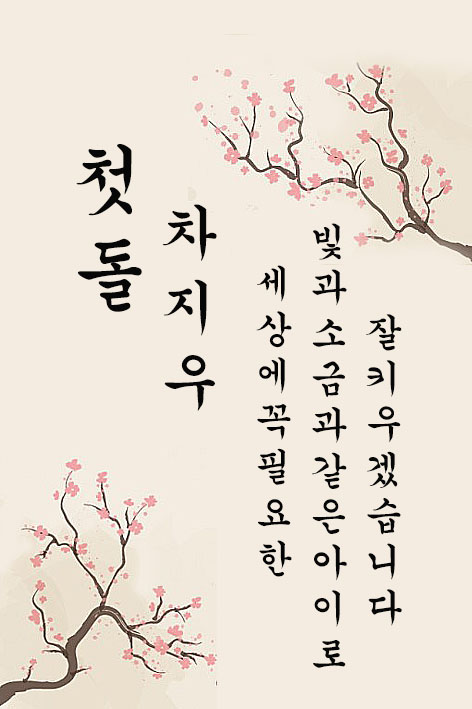 첫돌
차지우
세상에꼭필요한
빛과소금과같은아이로
잘키우겠습니다